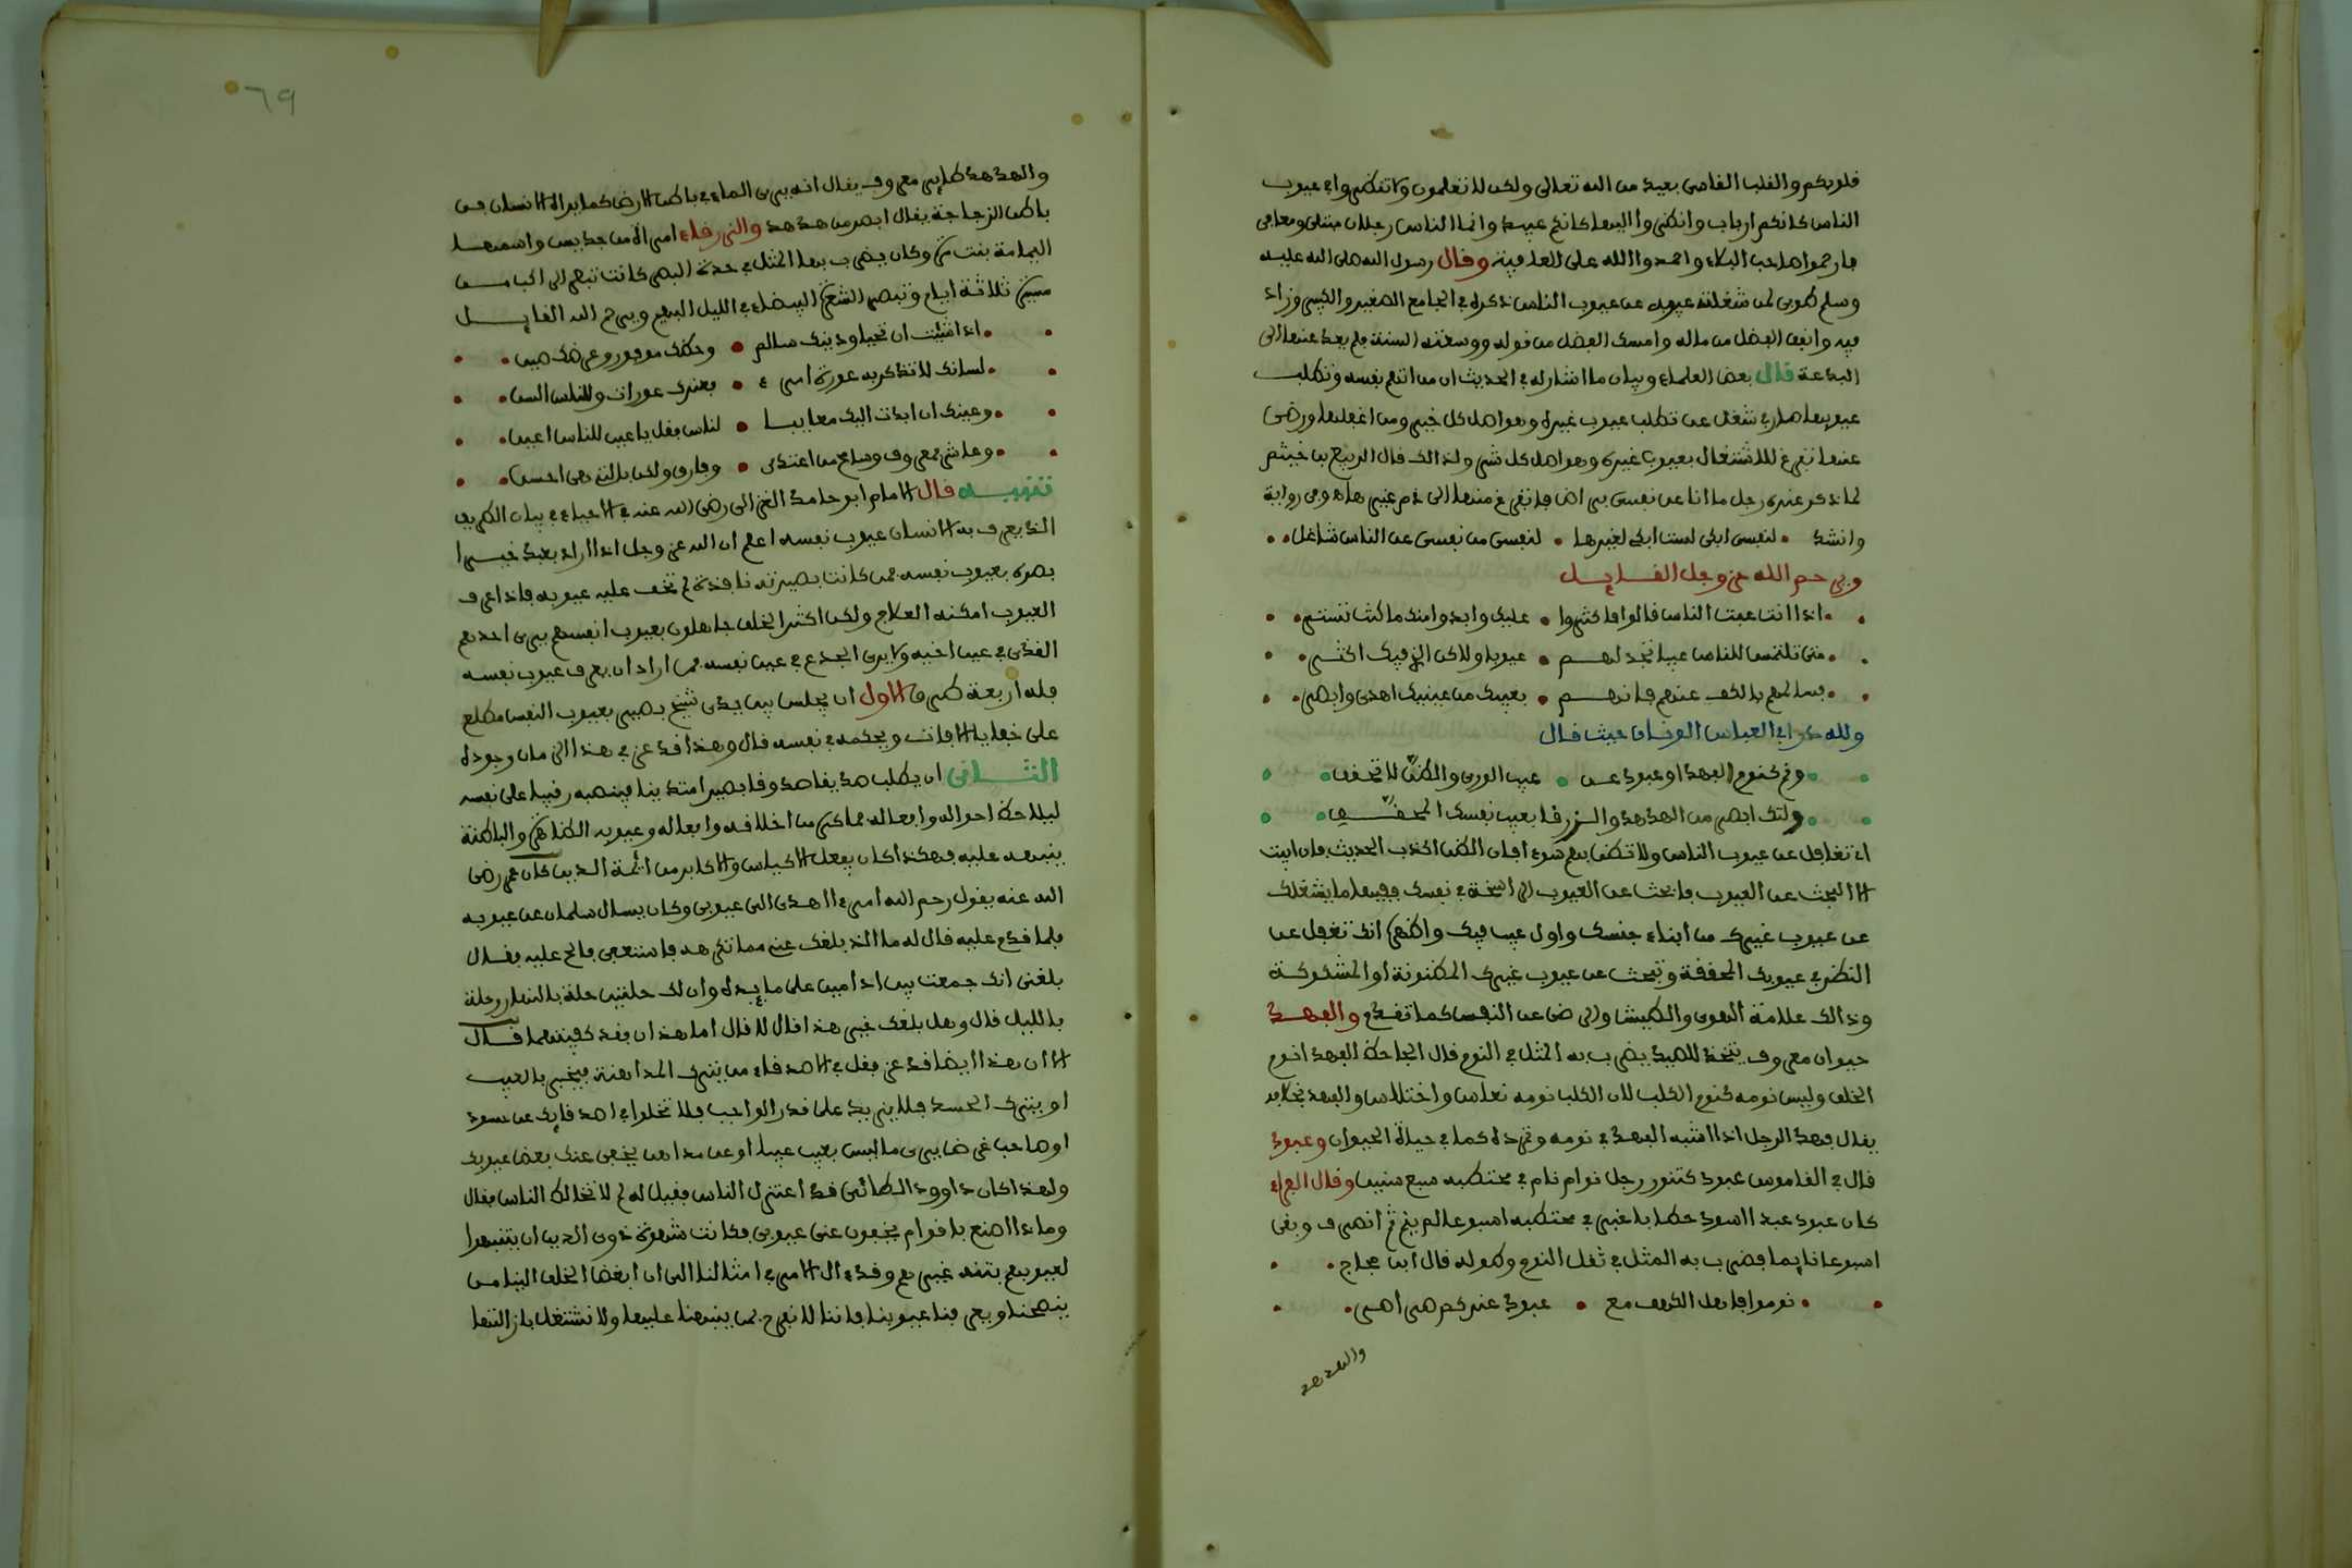 قلوبكم والقلب القاسى بعيد من الله تعالى ولكن لا تعلمون ولا تنظروا في عيوب
الناس كانكم ارباب وانظروا اليها كانكم عبيد وانما الناس رجلان مبتلى ومعافى
فارحموا صاحب البلاء واحمدوا الله على العافية وقال رسول الله صلى الله عليه
وسلم طوبى لمن شغلته عيوبه عن عيوب الناس ذكره في الجامع الصغير والكبير وزاد
فيه وانفق الفضل من ماله وامسك الفضل من قوله ووسعته السنة فلم يعد عنها الى
البدعة قال بعض العلماء وبيان ما اشار له في الحديث ان من اتهم نفسه وتطلب
عيوبها صار في شغل عن تطلب عيوب غيره وهو اصل كل خير ومن اغفلها ورضى
عنها تفرغ للاشتغال بعيوب غيره وهو اصل كل شر ولذالك قال الربيع بن خيثم
لما ذكر عنده رجل ما انا عن نفسى براض فاتفرغ منها الى ذم غيرها وفي رواية
وانشد • لنفسى ابكى لست ابكى لغيرها • لنفسى من نفسى عن الناس شاغل •
ويرحم الله عز وجل القايل
• اذا انت عبت الناس قالوا فاكثروا • عليك وابدوا منك ما كنت تستر •
• متى تلتمس للناس عيبا تجد لهم • عيوبا ولاكن الذي فيك اكثر •
• فسالمهم بالكف عنهم فانهم • بعيبك من عينيك اهدى وابصر •
ولله در ابي العباس حيث قال
• ونم كنوم الفهد او عبود عن • عيب الورى والظن لا تحقق •
• ولتك ابصر من الهدهد والزرقا بعيب نفسك المحقق •
اي تغافل عن عيوب الناس ولا تظن بهم سوءا فان الظن اكذب الحديث فان ابيت
الا البحث عن العيوب فابحث عن العيوب الراسخة في نفسك ففيها ما يشغلك
عن عيوب غيرك من ابناء جنسك واول عيب فيك واظهر انك تغفل عن
النظر في عيوبك المحققة وتبحث عن عيوب غيرك المظنونة او المشكوكة
وذالك علامة الهوى والطيش والرضى عن النفس كما تقدم والفهد
حيوان معروف يتخذ للصيد يضرب به المثل في النوم قال الجاحظ الفهد انوم
الخلق وليس نومه كنوم الكلب لان الكلب نومه نعاس واختلاس والفهد بخلافه
يقال فهد الرجل اذا اشبه الفهد في نومه وتمدده كما في حياة الحيوان وعبود
قال في القاموس عبود كتنور رجل نوام نام في محتطبه سبع سنين وقال الفراء
كان عبود عبدا اسود حطابا فغبر في محتطبه اسبوعا لم ينم ثم انصرف وبقي
اسبوعا نايما فضرب به المثل في ثقل النوم وطوله قال ابن حجاج •
• نوموا فاهل الكهف مع • عبود عندكم صراصر •
والهدهد
٦٩
والهدهد طاير معروف يقال انه يرى الماء في باطن الارض كما يراه الانسان في
باطن الزجاجة يقال ابصر من هدهد والزرقاء امراة من جديس واسمها
اليمامة بنت مرة وكان يضرب بها المثل في حدة البصر كانت تبصر الراكب من
مسيرة ثلاثة ايام وتبصر الشعرة البيضاء في الليل البهيم ويرحم الله القايل
• اذا شئت ان تحيا ودينك سالم • وحظك موفور وعرضك صين •
• لسانك لا تذكر به عورة امرء • فعندك عورات وللناس السن •
• وعينك ان ابدت اليك معايبا • لناس فقل يا عين للناس اعين •
• وعاشر بمعروف وسامح من اعتدى • وفارق ولكن بالتي هي احسن •
تنبيه قال الامام ابو حامد الغزالى رضى الله عنه في الاحياء في بيان الطريق
الذي يعرف به الانسان عيوب نفسه اعلم ان الله عز وجل اذا اراد بعبد خيرا
بصره بعيوب نفسه فمن كانت بصيرته نافذة لم تخف عليه عيوبه فاذا عرف
العيوب امكنه العلاج ولكن اكثر الخلق جاهلون بعيوب انفسهم يرى احدهم
القذى في عين اخيه ولا يرى الجذع في عين نفسه فمن اراد ان يعرف عيوب نفسه
فله اربعة طرق الاول ان يجلس بين يدي شيخ بصير بعيوب النفس مطلع
على خفايا الافات ويحكمه في نفسه قال وهذا قد عز في هذا الزمان وجوده
الثانى ان يطلب صديقا صدوقا بصيرا متدينا فينصبه رقيبا على نفسه
ليلاحظ احواله وافعاله فما كره من اخلاقه وافعاله وعيوبه الظاهرة والباطنة
ينبهه عليه فهكذا كان يفعل الاكياس والاكابر من ائمة الدين كان عمر رضى
الله عنه يقول رحم الله امرءا اهدى الى عيوبى وكان يسال سلمان عن عيوبه
فلما قدم عليه قال له ما الذي بلغك عني مما تكرهه فاستعفى فالح عليه فقال
بلغنى انك جمعت بين ادامين على مايدة وان لك حلتين حلة بالنهار وحلة
بالليل قال وهل بلغك غير هذا قال لا قال اما هذان فقد كفيتهما قال
الا ان هذا ايضا قد عز فقل في الاصدقاء من يترك المداهنة فيخبر بالعيب
او يترك الحسد فلا يزيد على قدر الواجب فلا تخلوا في اصدقايك عن حسود
او صاحب غرض يرى ما ليس بعيب عيبا او عن مداهن يخفى عنك بعض عيوبك
ولهذا كان داوود الطائى قد اعتزل الناس فقيل له لم لا تخالط الناس فقال
وماذا اصنع باقوام يخفون عنى عيوبى فكانت شهوة ذوى الدين ان يتنبهوا
لعيوبهم بتنبيه غيرهم وقد ءال الامر في امثالنا الى ان ابغض الخلق الينا من
ينصحنا ويعرفنا عيوبنا فاننا لا نفرح بمن ينبهنا عليها ولا نشتغل بازالتها